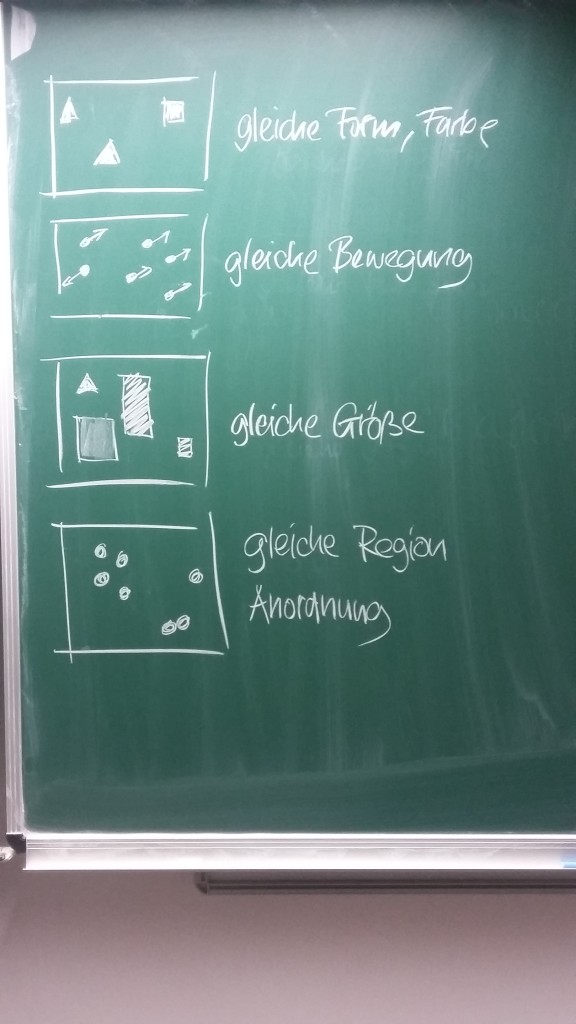 gleiche Form, Farbe
gleiche Bewegung
gleiche Größe
gleiche Region
Anordnung